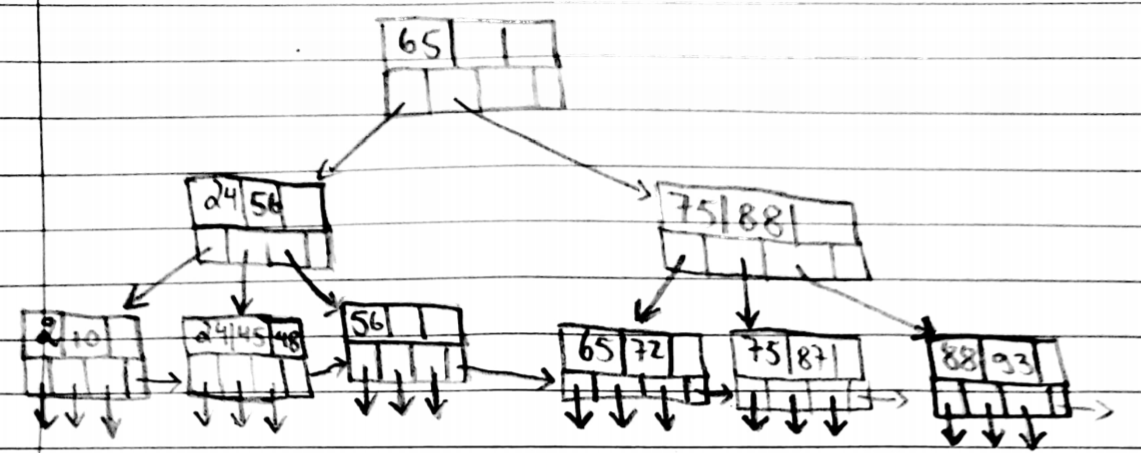 65
24 56
75 88
2 10
24 45 48
56
65 72
75 87
88 93